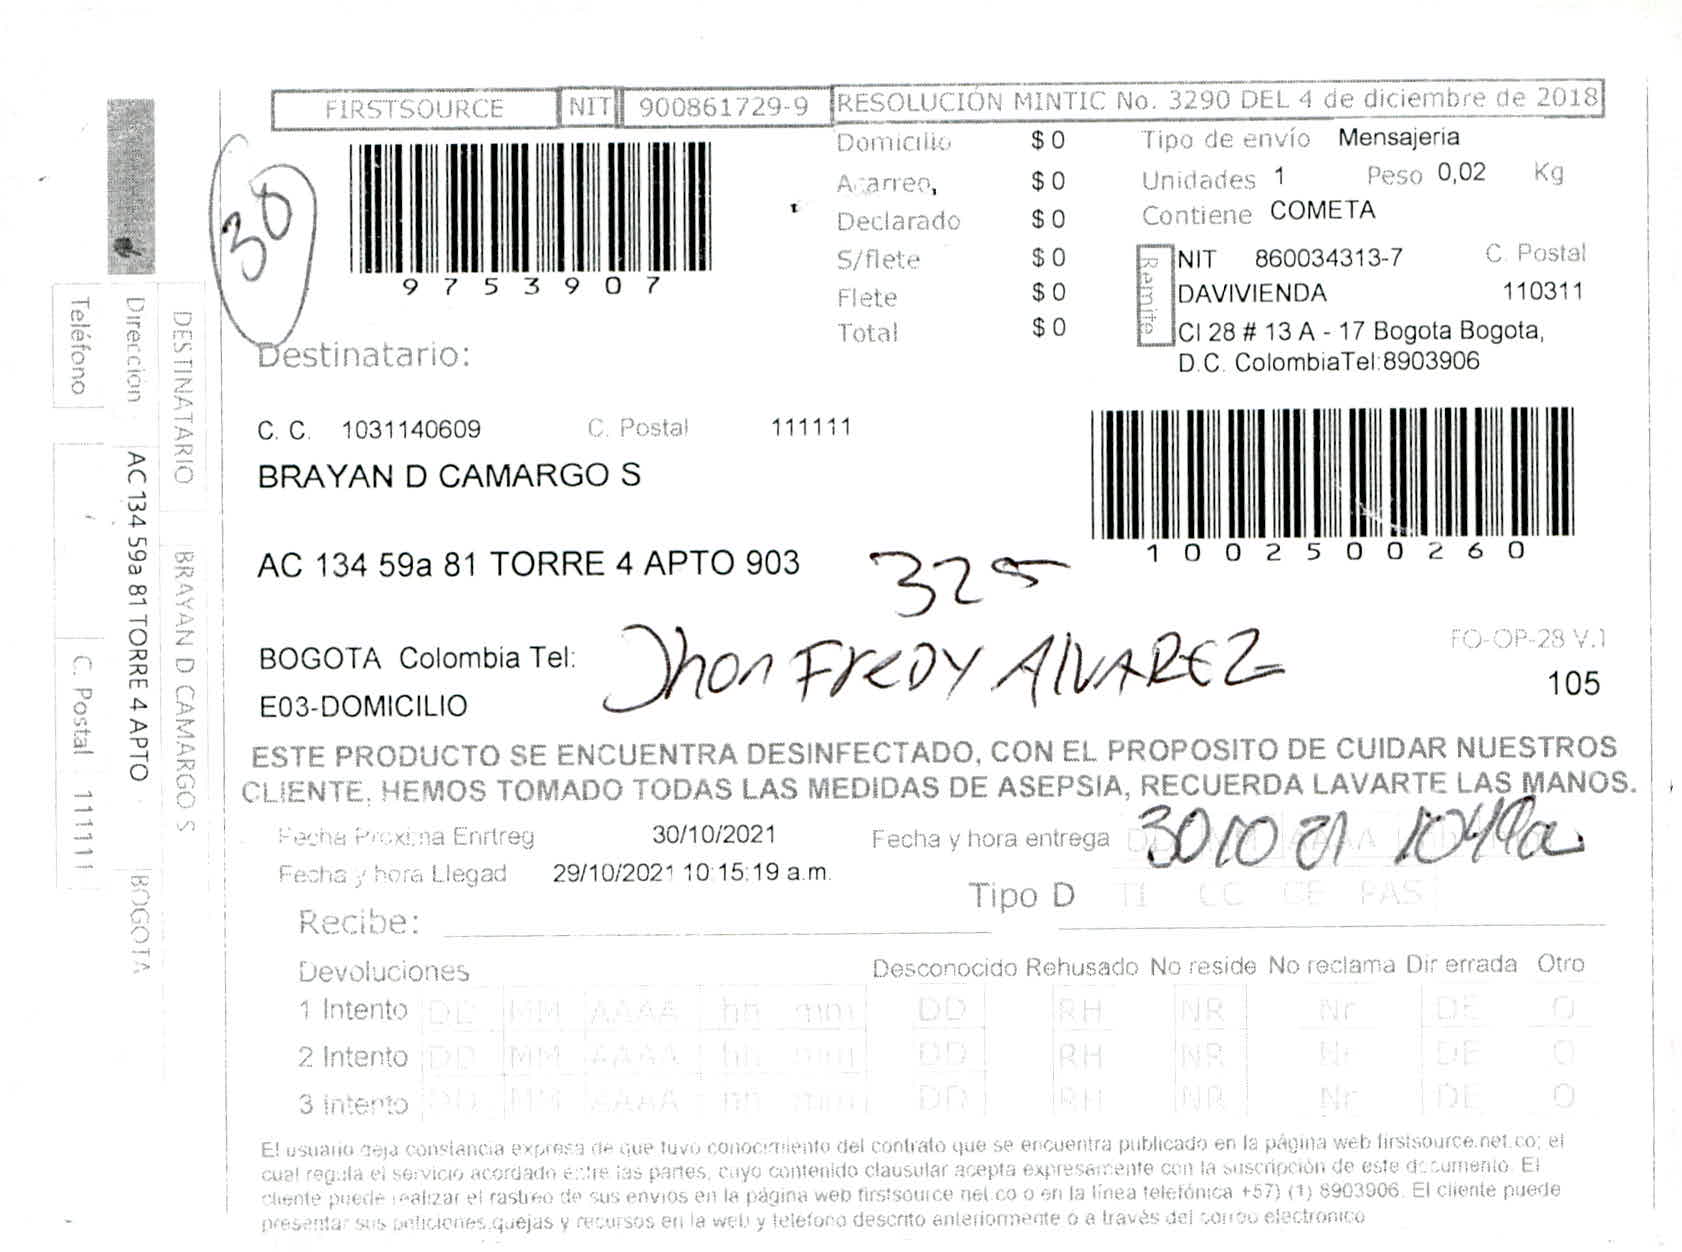 FIRSTSOURCE NIT 900861729-9 RESOLUCIÓN MINTIC No. 3290 DEL 4 de diciembre de 2018
30
9753907
Domicilio $ 0
Acarreo, $ 0
Declarado $ 0
S/flete $ 0
Flete $ 0
Total $ 0
Tipo de envío Mensajeria
Unidades 1 Peso 0,02 Kg
Contiene COMETA
Remite
NIT 860034313-7 C. Postal
DAVIVIENDA 110311
Cl 28 # 13 A - 17 Bogota Bogota,
D.C. ColombiaTel:8903906
Destinatario:
C. C. 1031140609 C. Postal 111111
BRAYAN D CAMARGO S
1002500260
AC 134 59a 81 TORRE 4 APTO 903
325
BOGOTA Colombia Tel:
Jhon FreDY AlVAREZ
FO-OP-28 V.1
E03-DOMICILIO
105
ESTE PRODUCTO SE ENCUENTRA DESINFECTADO, CON EL PROPOSITO DE CUIDAR NUESTROS
CLIENTE, HEMOS TOMADO TODAS LAS MEDIDAS DE ASEPSIA, RECUERDA LAVARTE LAS MANOS.
Fecha Proxima Enrtreg 30/10/2021 Fecha y hora entrega 30 10 21 1049a
Fecha y hora Llegad 29/10/2021 10:15:19 a.m.
Tipo D TI CC CE PAS
Recibe:
Devoluciones Desconocido Rehusado No reside No reclama Dir errada Otro
1 Intento DD MM AAAA hh mm DD RH NR Nr DE O
2 Intento DD MM AAAA hh mm DD RH NR Nr DE O
3 Intento DD MM AAAA hh mm DD RH NR Nr DE O
El usuario deja constancia expresa de que tuvo conocimiento del contrato que se encuentra publicado en la página web firstsource.net.co; el
cual regula el servicio acordado entre las partes, cuyo contenido clausular acepta expresamente con la suscripción de este documento. El
cliente puede realizar el rastreo de sus envios en la página web firstsource.net.co o en la línea telefónica +57) (1) 8903906. El cliente puede
presentar sus peticiones,quejas y recursos en la web y telefono descrito anteriormente o a través del correo electronico
DESTINATARIO BRAYAN D CAMARGO S
Dirección AC 134 59a 81 TORRE 4 APTO BOGOTA
Teléfono C. Postal 111111